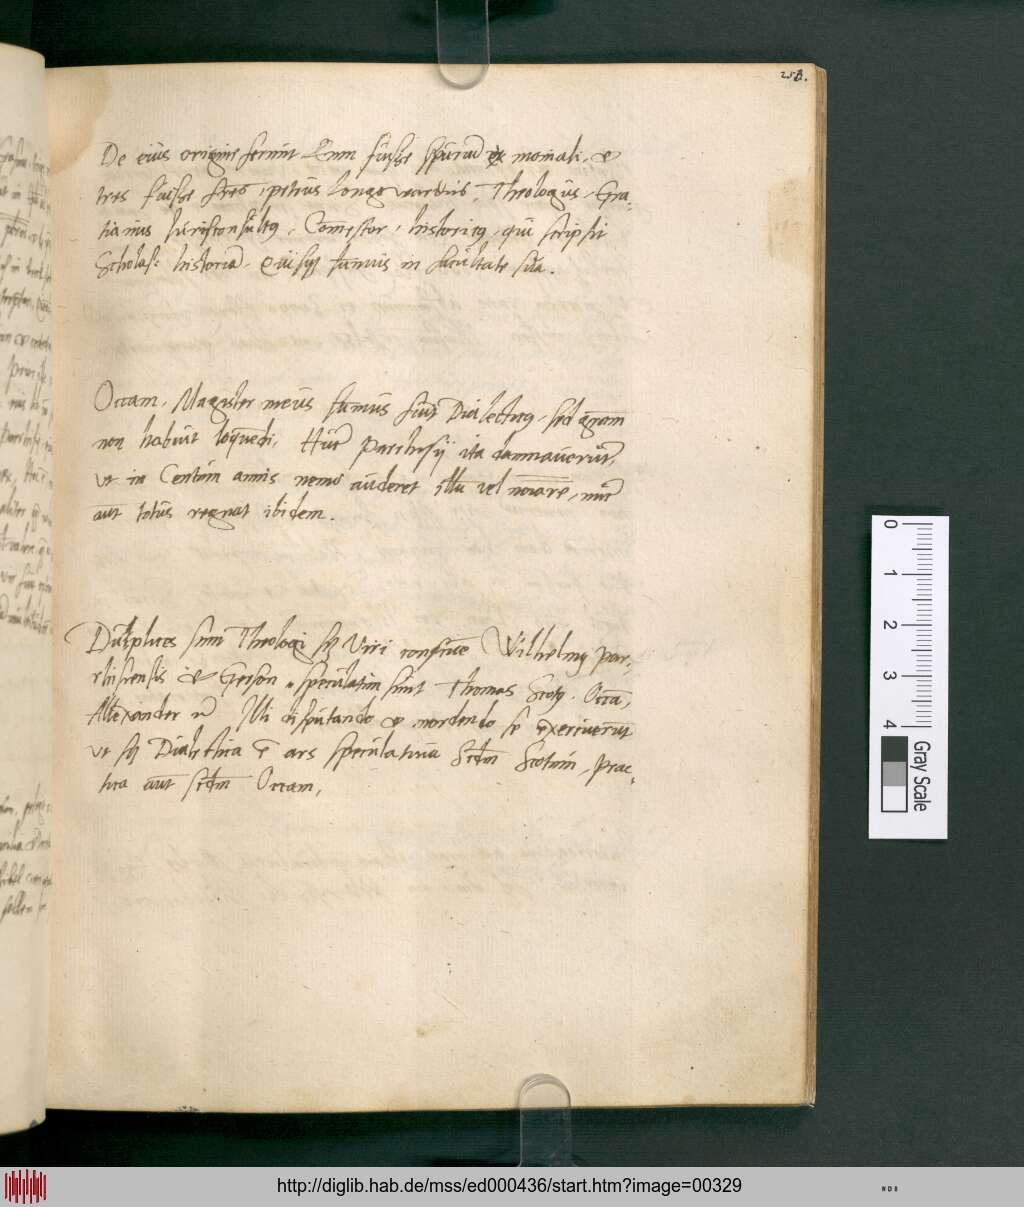 258.
De eius origine ferunt Eum fuisse spuriū ex moniali, et
tres fuisse fres, petrus longowardus, Theologus, Gra-
tianus Jurisconsultus, Comestor, historicus, qui scripsit
Scholas: historiā. Quisque summus in facultate sua.
Occam, Magister meus summus fuit Dialecticus, sed grām
non habuit loquendi. Hūc Parrhisij ita damnauerūt,
ut in Centum annis nemo auderet illū vel noīare, nunc
aut totus regnat ibidem.
Duplices sunt Theologi scz Viri conscīae Wilhelmus par-
rhisiensis et Gerson, speculatiui sunt Thomas Scotus. Occā,
Allexander rc̄ Illi disputando et mordendo se exeriuerūt
ut scz Dialectica ē ars speculatiua Scdm Scotum, prac-
tica aut scdm Occam,
0
1
2
3
4
Gray Scale
http://diglib.hab.de/mss/ed000436/start.htm?image=00329